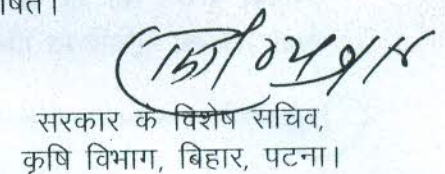 षित।
सरकार के विशेष सचिव,
कृषि विभाग, बिहार, पटना।